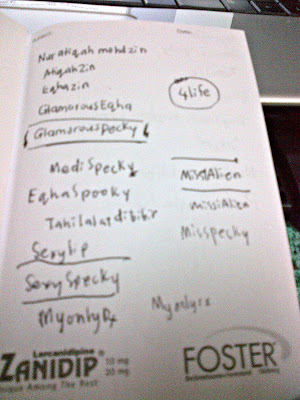 Nur atiqah mohd zin
Atiqah Zin
Eqhazin
4life
Glamorous Eqha
Glamorouspecky
MediSpecky
MissAlien
EqhaSpooky
missiAlien
Tahilalatdibibir
Misspecky
Sexylip
SexySpecky
Myonly Rx
Myonlyrx
Lercanidipine
ZANIDIP
10 mg
20 mg
Unique Among The Rest
FOSTER